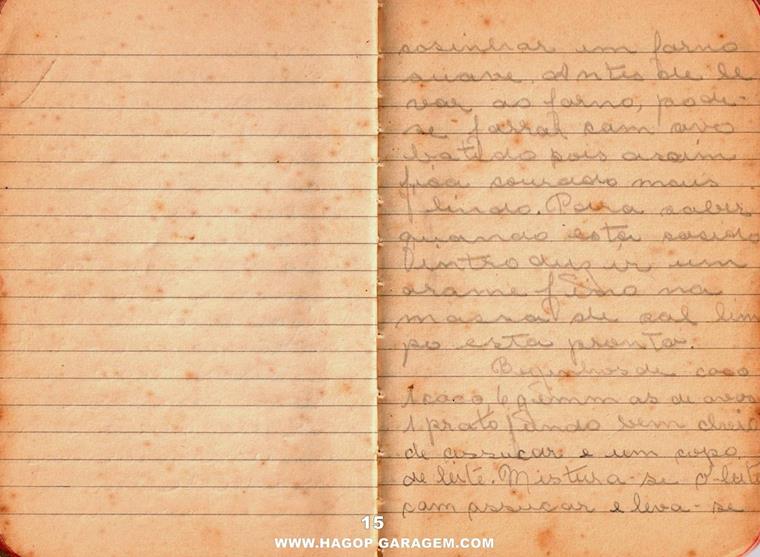 cosinhar em forno
suave. Antes de le
var ao forno, pode-
se farral com ovo
batido pois assim
fica courado mais
lindo. Para saber
quando está cosido
introdusir um
arame fino na
massa se sal lim
po esta pronta.
Beijinhos de coco
1 coco 6 gemmas de ovos
1 prato fundo bem cheio
de assucar e um copo
de leite. Mistura-se o leite
com assucar e leva-se
15
WWW.HAGOP GARAGEM.COM